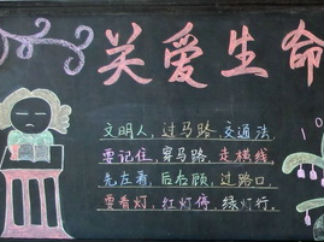 关爱生命
文明人，过马路，交通法，
要记住，穿马路，走横线，
先左看，后右顾，过路口，
要看灯，红灯停，绿灯行。